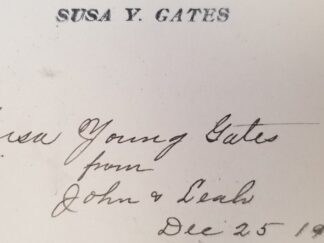 SUSA Y. GATES
Young Gates
from
John & Leah
Dec 25